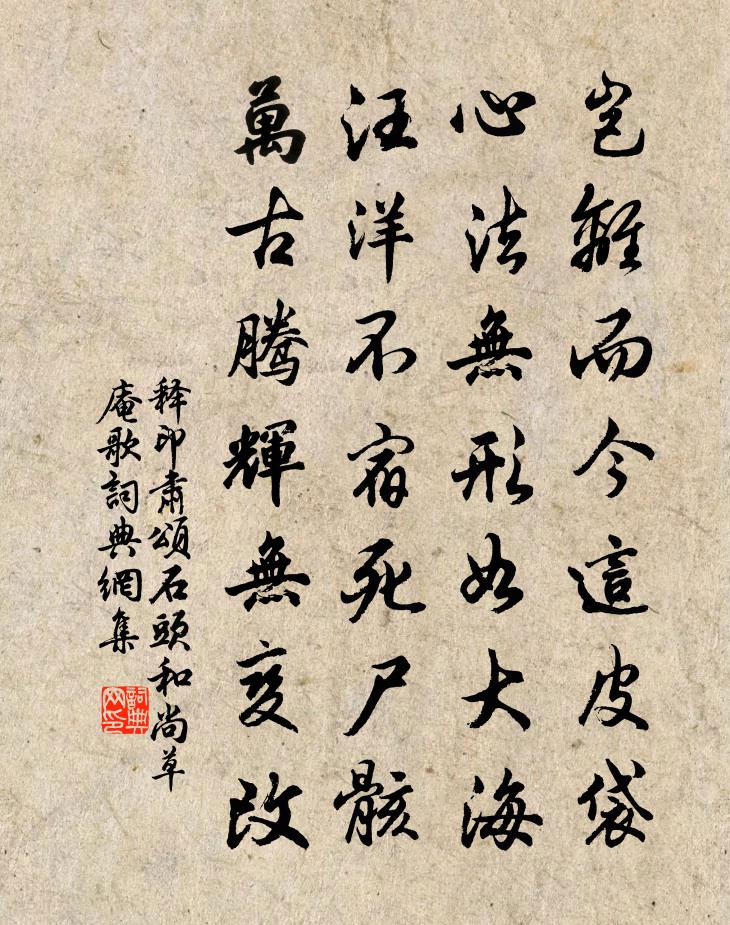 豈離而今這皮袋
心法無形如大海
汪洋不宿死尸骸
萬古騰輝無变改
释印肅頌石頭和尚草
庵歌詞典網集
詞典
网印